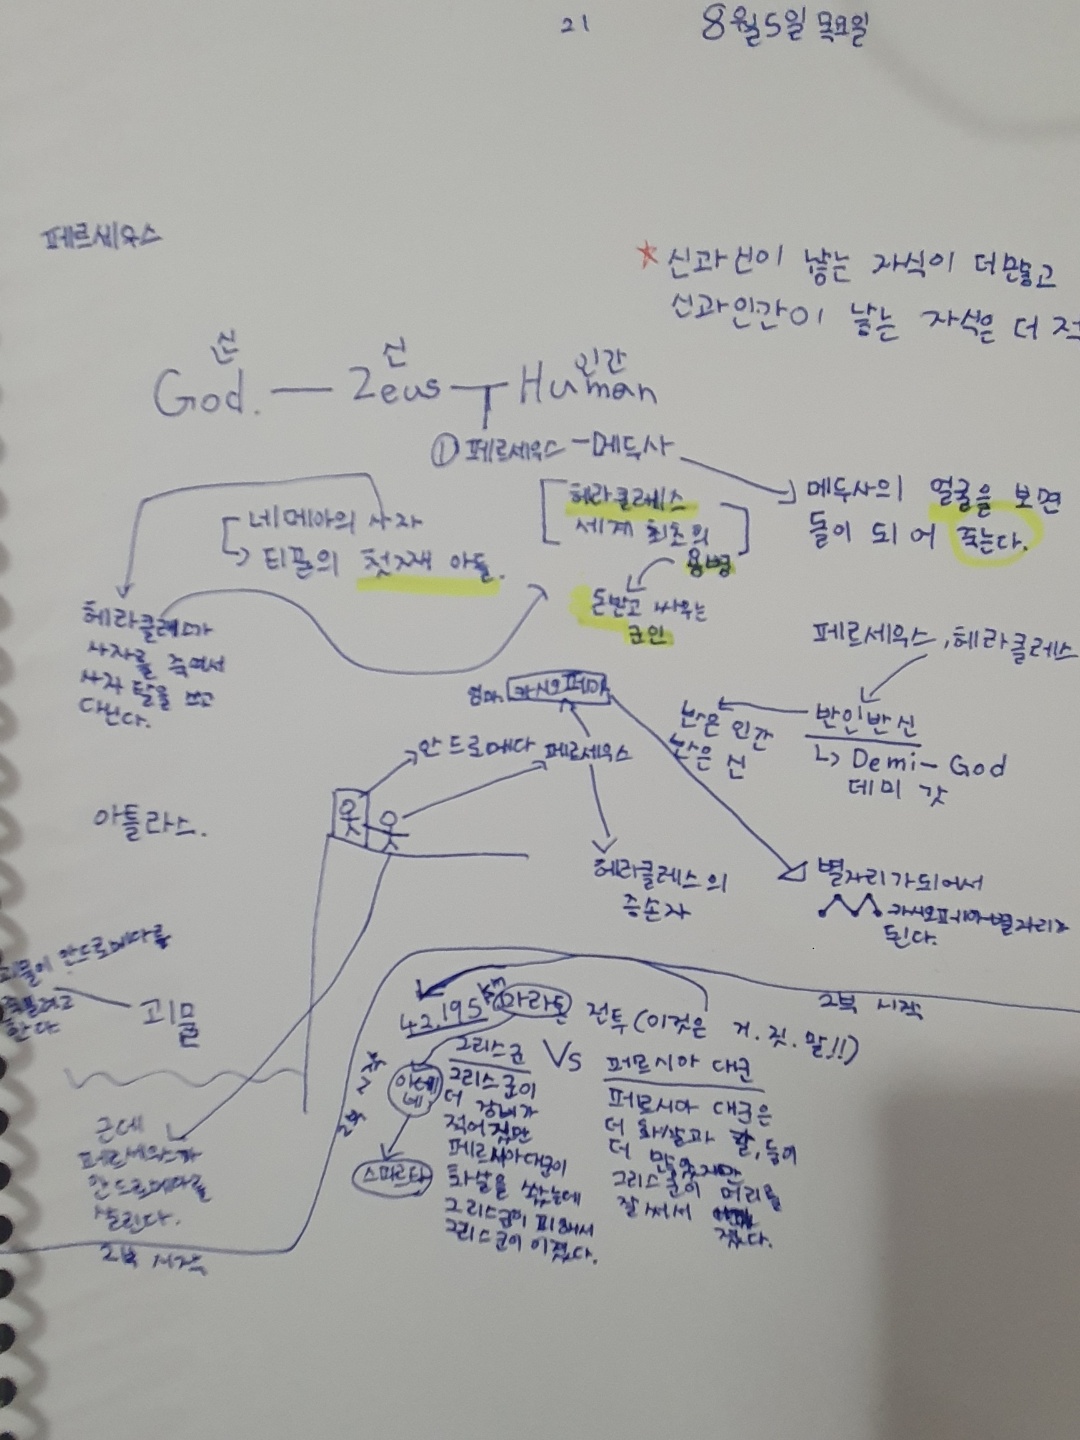 21
8월5일 목요일
페르세우스
★ 신과신이 낳는 자식이 더많고
신과인간이 낳는 자식은 더 적
신 신 인간
God. — Zeus — Human
① 페르세우스 - 메두사
메두사의 얼굴을 보면
돌이 되어 죽는다.
네메아의 사자
티폰의 첫째 아들.
헤라클레스
세계 최초의
용병
돈받고 싸우는
군인
헤라클레스가
사자를 죽여서
사자 탈을 쓰고
다닌다.
페르세우스, 헤라클레스
반인반신
Demi-God
데미 갓
반은 인간
반은 신
엄마. 카시오페아
안드로메다 페르세우스
헤라클레스의
증손자
별자리가되어서
카시오페아별자리가
된다.
아틀라스.
괴물이 안드로메다를
한다
괴물
근데
페르세우스가
안드로메다를
살린다.
2부 시작
2부 시작
42.195km 마라톤 전투(이것은 거.짓.말!!)
그리스군 Vs 페르시아 대군
아테네
스파르타
그리스군이
더 장비가
적어집만
페르시아대군이
화살을 쐈는데
그리스군이 피해서
그리스군이 이겼다.
페르시아 대군은
더 화살과 칼, 등이
더 많았지만
그리스군이 머리를
잘써서
졌다.